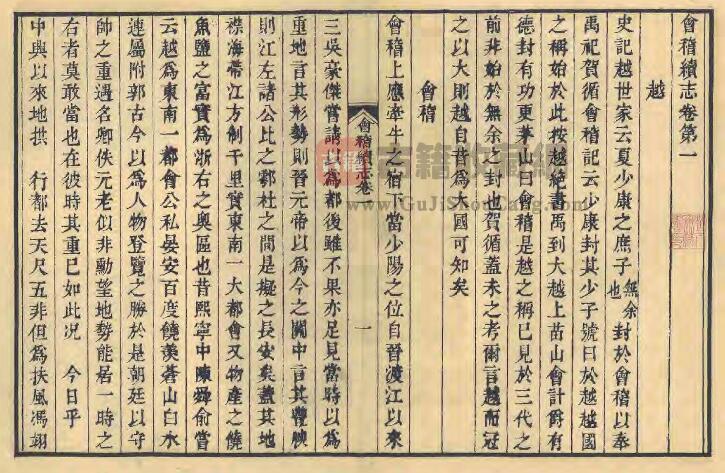 會稽續志卷第一
越
史記越世家云夏少康之庶子無余也封於會稽以奉
禹祀賀循會稽記云少康封其少子號曰於越越國
之稱始於此按越絕書禹到大越上苗山會計爵有
德封有功更茅山曰會稽是越之稱已見於三代之
前非始於無余之封也賀循蓋未之考爾言越而冠
之以大則越自昔為大國可知矣
會稽
會稽上應牽牛之宿下當少陽之位自晉渡江以來
會稽續志卷一
一
三吳豪傑嘗請以為都後雖不果亦足見當時以為
重地言其形勢則晉元帝以為今之關中言其豐腴
則江左諸公比之鄠杜之間是擬之長安矣蓋其地
襟海帶江方制千里實東南一大都會又物產之饒
魚鹽之富實為浙右之奧區也昔熙寧中陳舜俞嘗
云越為東南一都會公私晏安百度饒羨蒼山白水
連屬附郭古今以為人物登覽之勝於是朝廷以守
帥之重遇名卿佚元老似非勳望地勢能居一時之
右者莫敢當也在彼時其重已如此況 今日乎
中興以來地拱 行都去天尺五非但為扶風馮翊
www.GuJiShouCang.com